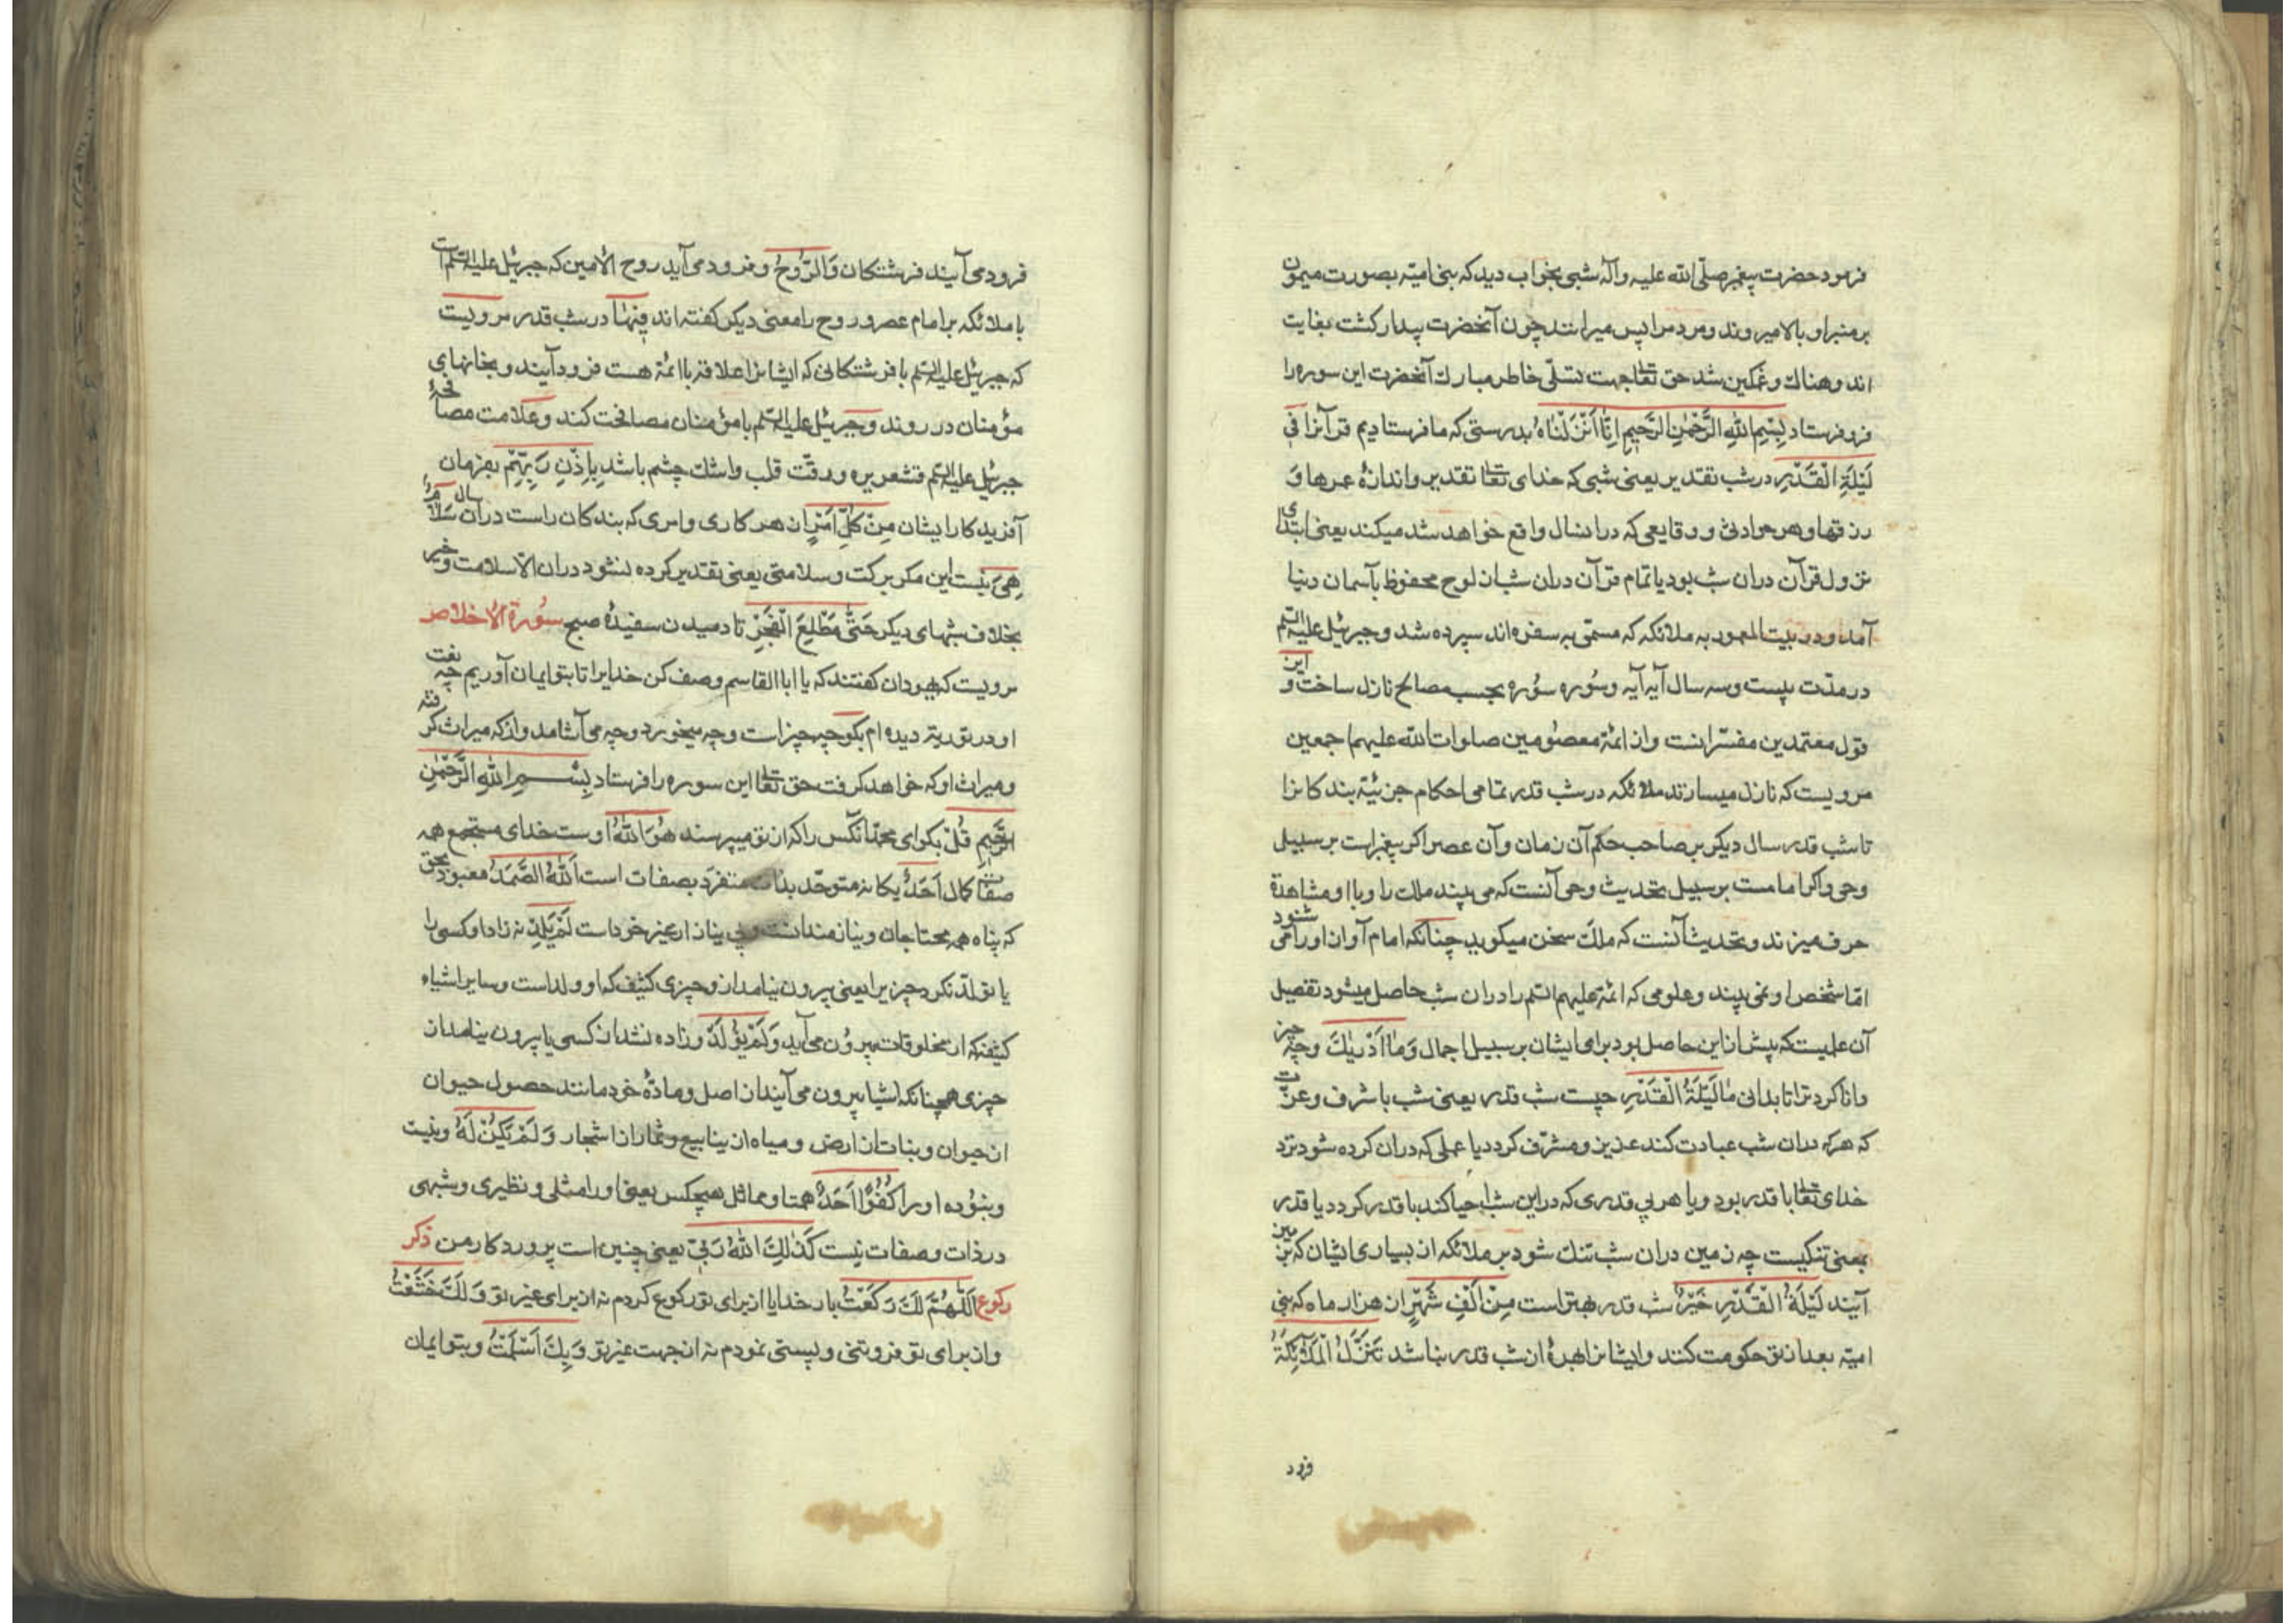 فرمود حضرت پیغمبر صلّی الله علیه وآله شبی بخواب دید که بنی امیّه بصورت میمون
بر منبر او بالا میروند و مردم را پس میرانند چون آنحضرت بیدار کشت بغایت
اندوهناک و غمکین شد حق تعا جهت تسلّی خاطر مبارک آنحضرت این سوره را
فرو فرستاد بِسْمِ اللهِ الرَّحْمٰنِ الرَّحِیمِ اِنَّا اَنْزَلْنَاهُ بدرستی که ما فرستادیم قرآنرا فِی
لَیْلَةِ الْقَدْرِ در شب تقدیر یعنی شبی که خدای تعا تقدیر و اندازهٔ عمرها وَ
رزقها و هر حوادثی و وقایعی که در انسال واقع خواهد شد میکند یعنی ابتدای
نزول قرآن دران شب بود یا تمام قرآن دران شب از لوح محفوظ بآسمان دنیا
آمد و در بیت المعمور به ملائکه که مسمّی به سفره اند سپرده شد و جبرئیل علیه السّلم
در مدّت بیست و سه سال آیه آیه و سُوره سُوره بحسب مصالح نازل ساخت و این
قول معتمدین مفسّرانست و از ائمّه معصُومین صلوات الله علیهم اجمعین
مرویست که نازل میسازند ملائکه در شب قدر تمامی احکام جزئیّه بندکانرا
تا شب قدر سال دیکر بر صاحب حکم آن زمان و آن عصر اکر پیغمبراست بر سبیل
وحی و اکر امامست بر سبیل تحدیث وحی آنست که می بیند ملک را و با او مشاهدة
حرف میزند و تحدیث آنست که ملک سخن میکوید چنانکه امام آواز او را می شنود
امّا شخص او نمی بیند و علومی که ائمّه علیهم السّلم را دران شب حاصل میشود تفصیل
آن علمیست که پیش از این حاصل بود برای ایشان بر سبیل اجمال وَمَا اَدْرٰیكَ و چه چیز
دانا کرد ترا تا بدانی مٰا لَیْلَةُ الْقَدْرِ چیست شب قدر یعنی شب با شرف و عزّت
که هر که دران شب عبادت کند عزیز و مشرّف کردد یا عملی که دران کرده شود نزد
خدای تعا با قدر بود و یا هر بی قدری که دراین شب احیا کند با قدر کردد یا قدر
بمعنی تنکیست چه زمین دران شب تنك شود بر ملائکه از بسیاری ایشان که بزمین
آیند لَیْلَةُ الْقَدْرِ خَیْرٌ شب قدر بهتر است مِنْ اَلْفِ شَهْرٍ از هزار ماه که بنی
امیّه بعد از تو حکومت کنند و ایشانرا بهرهٔ از شب قدر نباشد تَنَزَّلُ الْمَلٰئِکَةُ
فرود
فرود می آیند فرشتکان وَالرُّوحُ و فرود می آید روح الامین که جبرئیل علیه السّلم است
با ملائکه بر امام عصر و روح را معنی دیکر کفته اند فِیهٰا در شب قدر مرویست
که جبرئیل علیه السّلم با فرشتکانی که ایشانرا علاقه با ائمّه هست فرود آیند و بخانهای
مؤمنان در روند و جبرئیل علیه السّلم با مؤمنان مصافحت کند و علامت مصافحهٔ
جبرئیل علیه السّلم قشعریره و رقّت قلب و اشك چشم باشد بِاِذْنِ رَبِّهِمْ بفرمان
آفریدکار ایشان مِنْ کُلِّ اَمْرٍ از هر کاری و امری که بندکان راست دران سال سَلَامٌ
هِیَ نیست این مکر برکت و سلامتی یعنی تقدیر کرده نشود دران الّا سلامت و خیر
بخلاف شبهای دیکر حَتّٰی مَطْلَعِ الْفَجْرِ تا دمیدن سفیدهٔ صبح سُورة الاخلاص
مرویست که یهودان کفتند که یا ابا القاسم وصف کن خدایرا تا بتو ایمان آوریم چه نعت
او در توریة دیده ام بکو چه چیز است و چه میخورد و چه می آشامد و از که میراث کرفته
و میراث او که خواهد کرفت حق تعا این سوره را فرستاد بِسْمِ اللهِ الرَّحْمٰنِ
الرَّحِیمِ قُلْ بکو ای محمّد آنکس را که از تو میپرسند هُوَ اللهُ اوست خدای مستجمع همه
صفات کمال اَحَدٌ یکانه متوحّد بذات متفرّد بصفات است اَللهُ الصَّمَدُ معبود بحق
که پناه همه محتاجان و نیازمندانست و بی نیاز از غیر خود است لَمْ یَلِدْ نه زاد او کسی را
یا تولّد نکرد چیزیرا یعنی بیرون نیامد از و چیزی کثیف که او ولد است و سایر اشیاء
کثیفه که از مخلوقات بیرُون می آید وَلَمْ یُولَدْ و زاده نشد از کسی یا بیرون نیامد از
چیزی همچنانکه اشیا بیرون می آیند از اصل و مادّهٔ خود مانند حصول حیوان
از حیوان و نبات از ارض و میاه از ینابیع و ثمار از اشجار وَلَمْ یَکُنْ لَهُ و نیست
و نبُوده او را کُفُوًا اَحَدٌ همتا و مماثل هیچکس یعنی او را مثلی و نظیری و شبهی
در ذات و صفات نیست کَذٰلِكَ اللهُ رَبِّی یعنی چنین است پروردکار من ذکر
رکوع اَللّٰهُمَّ لَكَ رَکَعْتُ بار خدایا از برای تو رکوع کردم نه از برای غیر تو وَلَكَ خَشَعْتُ
و از برای تو فروتنی و پستی نمودم نه از جهت غیر تو وَبِكَ اَسْلَمْتُ و بتو ایمان